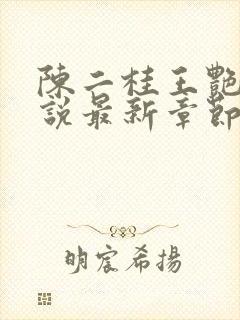 陳二柱王艷
說最新章節
明宸希揚